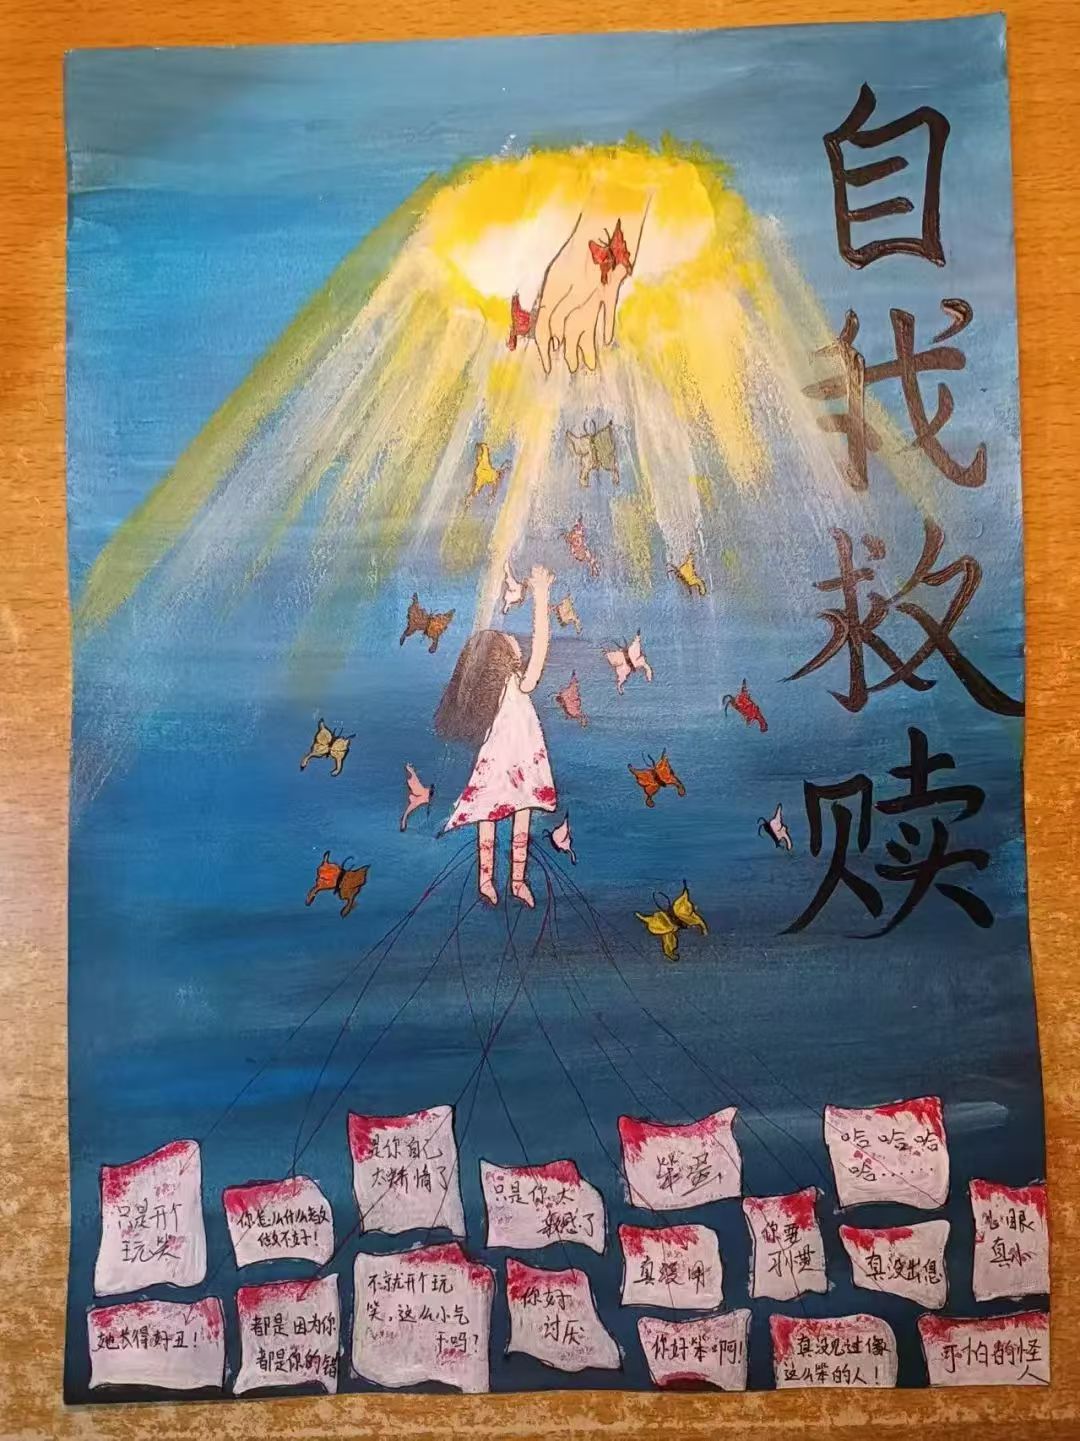 自我救赎
只是开个
玩笑
你怎么什么都
做不好！
是你自己
太矫情了
只是你太
敏感了
笨蛋，
哈哈哈
哈……
真没用
你要
习惯
真没出息
心眼
真小
她长得好丑！
都是因为你
都是你的错
不就开个玩
笑，这么小气
干吗？
你好
讨厌
你好笨啊！
真没见过像
这么笨的人！
可怕的怪
人